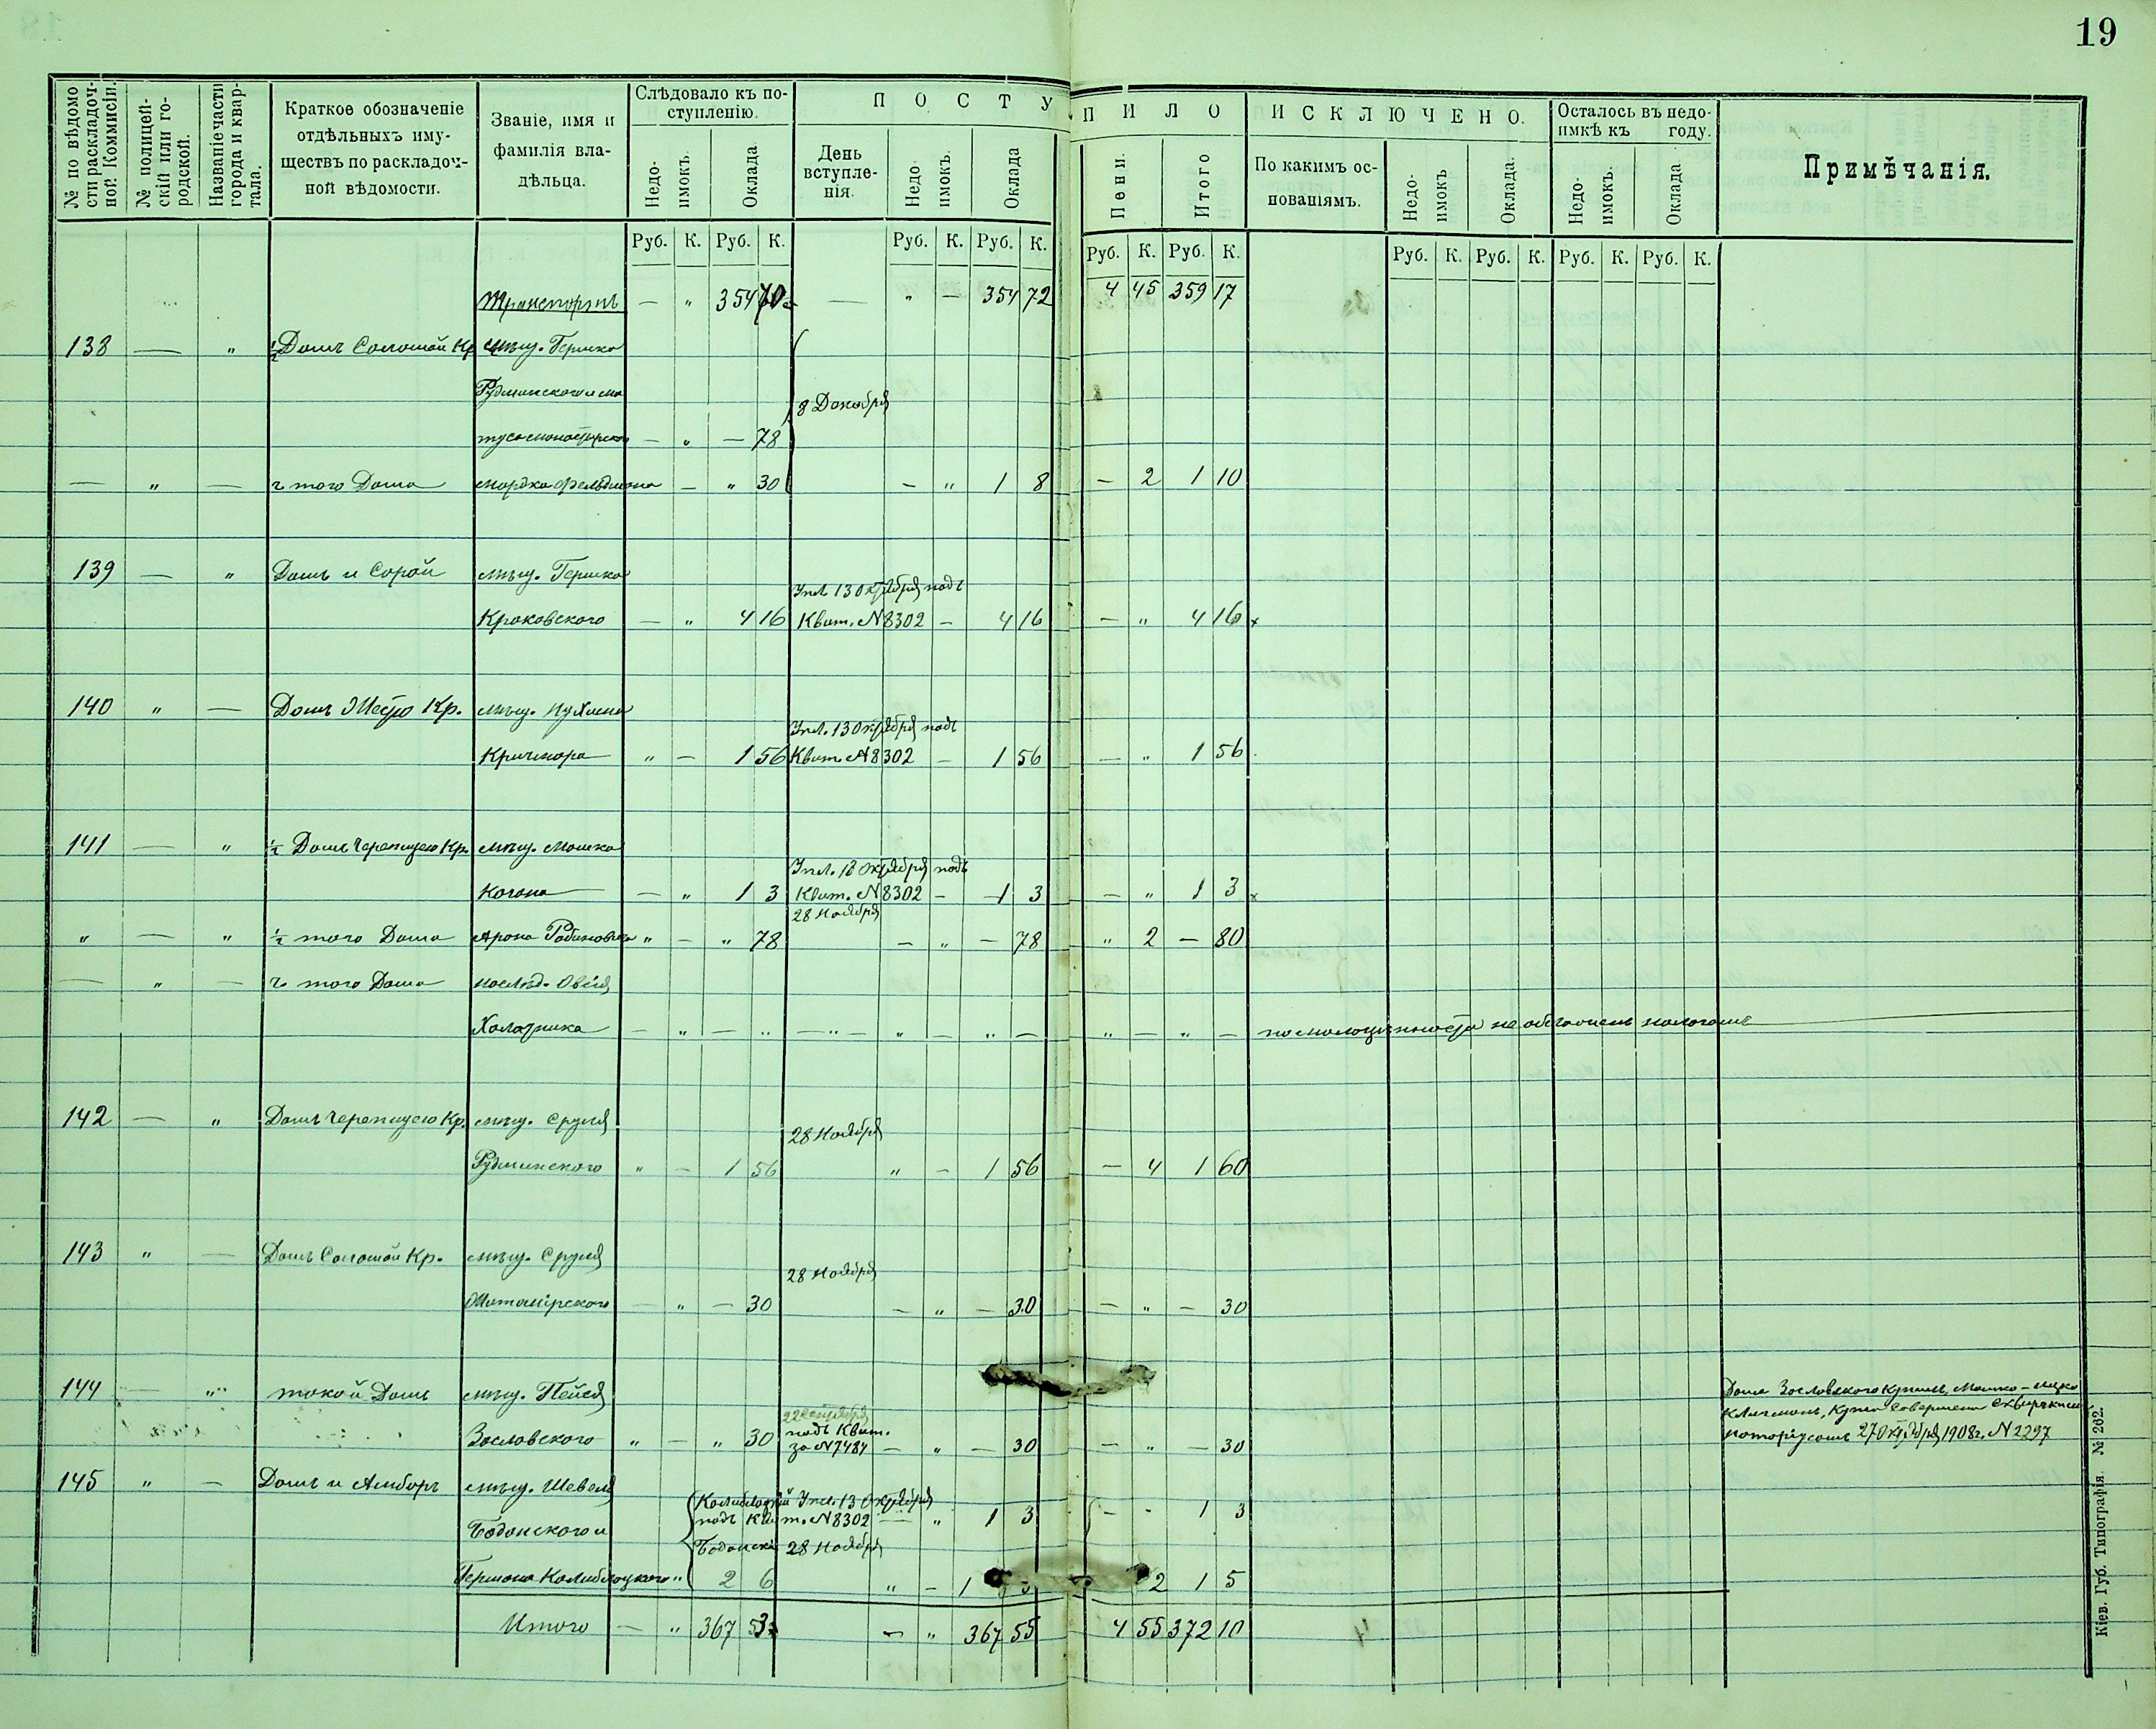 19
№ по вѣдомости раскладочной Коммисіи.
№ полицейскій или городской.
Названіе части города и квартала.
Краткое обозначеніе отдѣльныхъ имуществъ по раскладочной вѣдомости.
Званіе, имя и фамилія владѣльца.
Слѣдовало къ поступленію.
Недоимокъ. Оклада
ПОСТУПИЛО
День вступленія. Недоимокъ. Оклада Пени. Итого
ИСКЛЮЧЕНО.
По какимъ основаніямъ. Недоимокъ Оклада.
Осталось въ недоимкѣ къ году.
Недоимокъ. Оклада
Примѣчанія.
Руб. К. Руб. К. Руб. К. Руб. К. Руб. К. Руб. К. Руб. К. Руб. К. Руб. К. Руб. К.
Транспортъ — " 354 — " — 354 72 4 45 359 17
138 — " ½ Домъ Соломой Кр мѣщ. Гершка
Рудминского и Мо
8 Декабря
— " — 78
— " — ч того Дома Мордка Фельдмана — " 30 — " 1 8 — 2 1 10
139 — " Домъ и Сарай мѣщ. Гершка
Упл. 13 Октября подъ
Краковского — " 4 16 Квит. № 8302 — 4 16 — " 4 16 х
140 " — Домъ Кр. мѣщ. Нухима
Упл. 13 Октября подъ
Кричмара " — 1 56 Квит. № 8302 — 1 56 — " 1 56
141 — " ½ Домъ Черепицею Кр. мѣщ. Мошка
Упл. 13 Октября подъ
Когана — " 1 3 Квит. № 8302 — 1 3 — " 1 3 х
28 Ноября
" — " ½ того Дома Арона Рабиновича " — " 78 — " — 78 " 2 — 80
— " — ч того Дома наслѣд. Овсія
Халатника — " — " — " — " — " — " — " — по малоцѣнности не обложенъ налогомъ
142 — " Домъ Черепицею Кр. мѣщ. Сруля
28 Ноября
Рудминского " — 1 56 " — 1 56 — 4 1 60
143 " — Домъ Соломой Кр. мѣщ. Сруля
28 Ноября
— " — 30 — " — 30 — " — 30
144 — " такой Домъ мѣщ. Пейся
Домъ Зославского Мошко-Ицко
22 Сентября
Кличманъ, Купчая совершена Сквирскимъ
Зославского " — " 30 подъ Квит. за № 7484 — " — 30 — " — 30
нотаріусомъ 27 Октября 1908 г. № 2297
145 " — Домъ и Амбаръ мѣщ. Шевеля
Калиблоцкій Упл. 13 Октября
подъ Квит. № 8302 — " 1 3 — - 1 3
Боданского и
Боданскій 28 Ноября
Гершона Калиблоцкого " 2 6 " — 1 3 2 1 5
Итого — " 367 — " 367 55 4 55 372 10
Кіев. Губ. Типографія. № 262.